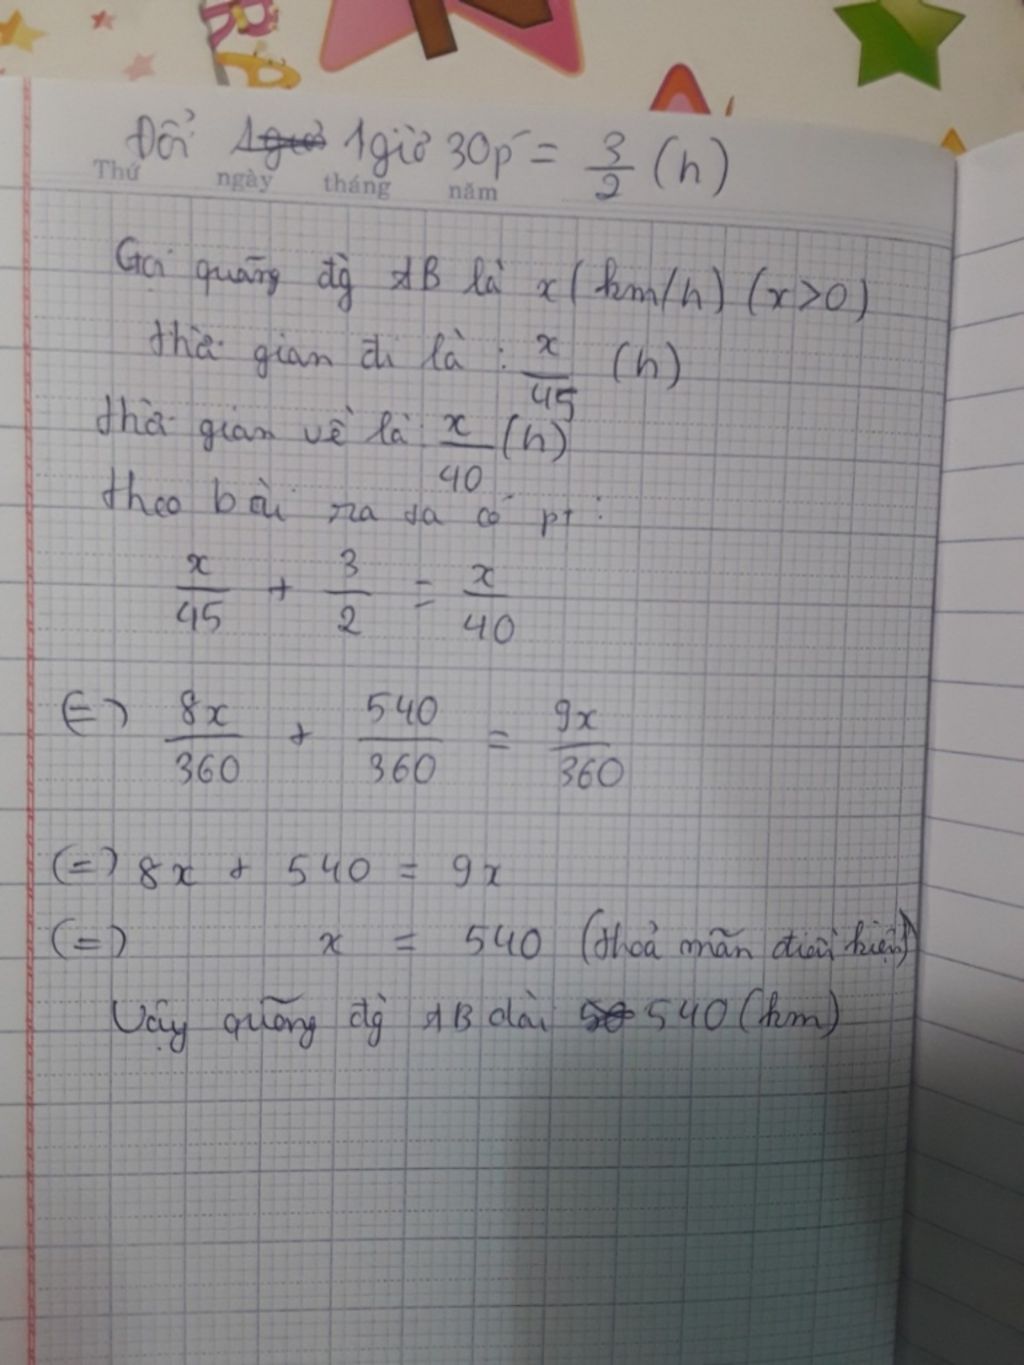 Đổi 1giờ 1giờ 30p' = 3/2 (h)
Thứ ngày tháng năm
Gọi quãng đg AB là x ( km/h) (x>0)
thời gian đi là : x/45 (h)
thời gian về là x/40 (h)
theo bài ra ta có pt :
x/45 + 3/2 = x/40
(=) 8x/360 + 540/360 = 9x/360
(=) 8x + 540 = 9x
(=) x = 540 (thoả mãn điều kiện)
Vậy quãng đg AB dài 50 540 (km)